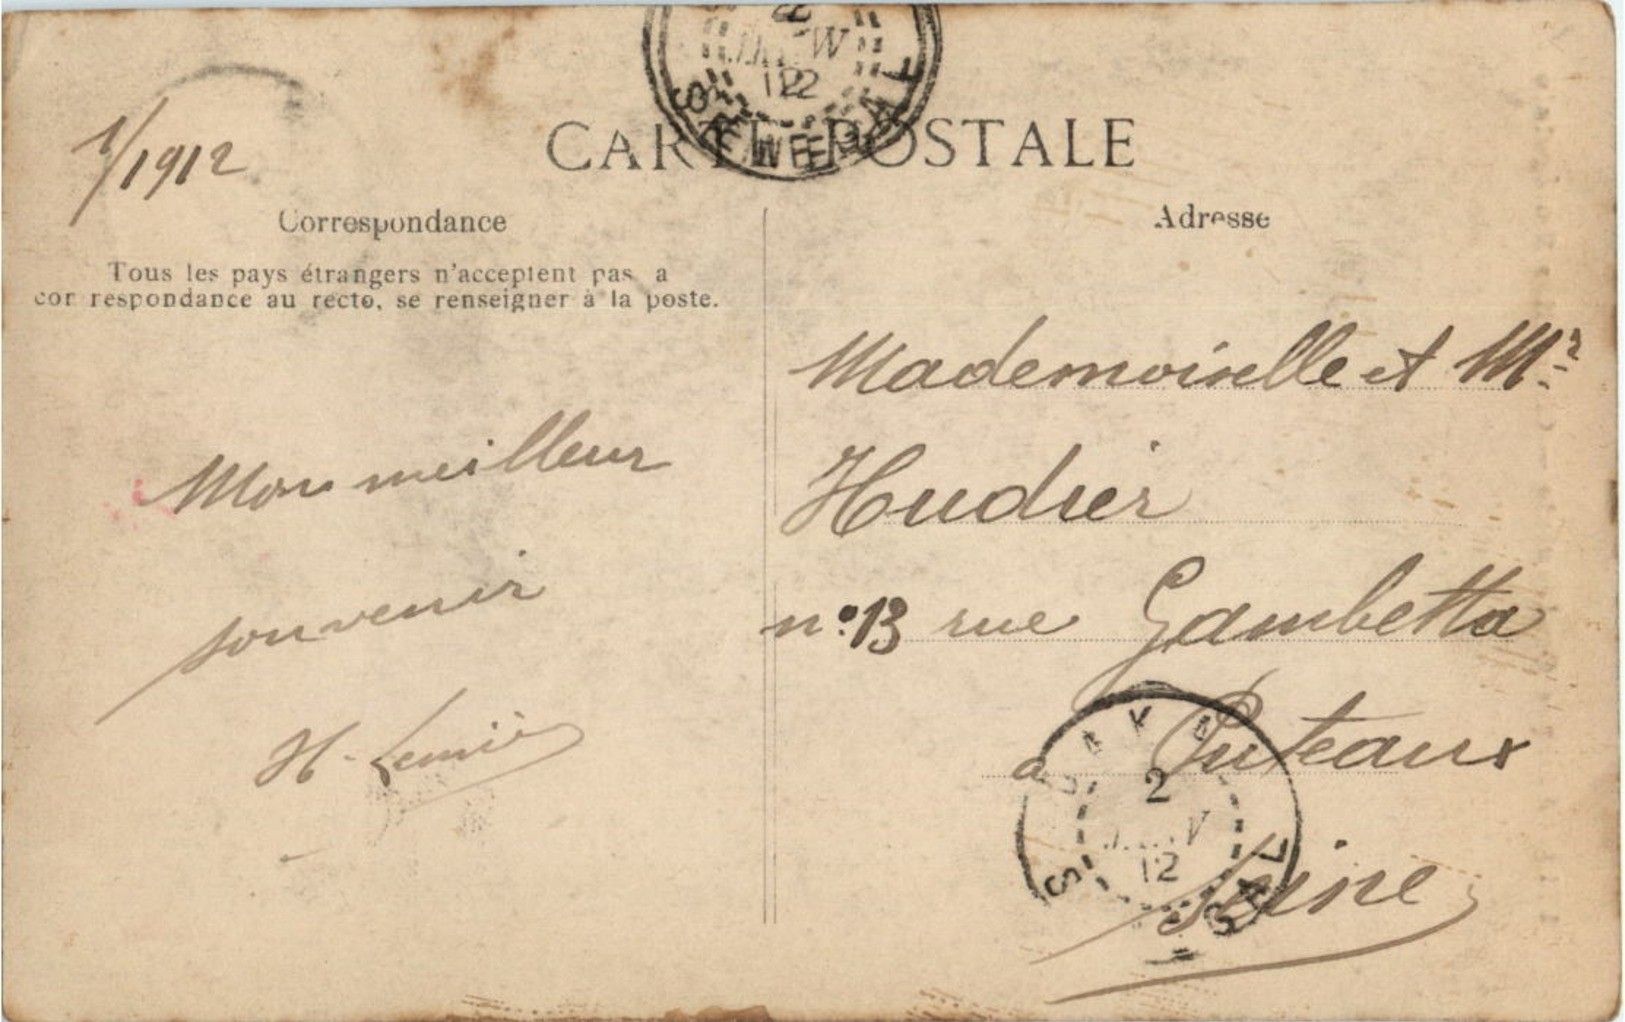 1/1912
CARTE POSTALE
Correspondance
Adresse
Tous les pays étrangers n'acceptent pas a
cor respondance au recto, se renseigner à la poste.
Mademoiselle et Mr
Hudier
n° 13 rue Gambetta
à Puteaux
Seine
Mon meilleur
souvenir
H.
JANV
12
SENEGAL
DAKAR
2
JANV
12